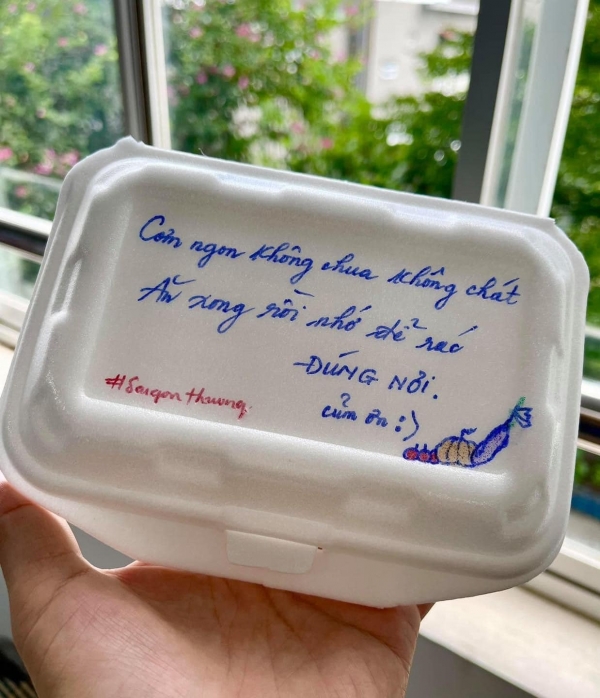 Cơm ngon không chua không chát
Ăn xong rồi nhớ để rác
ĐÚNG NƠI.
củm ơn :)
#Saigonthuong.